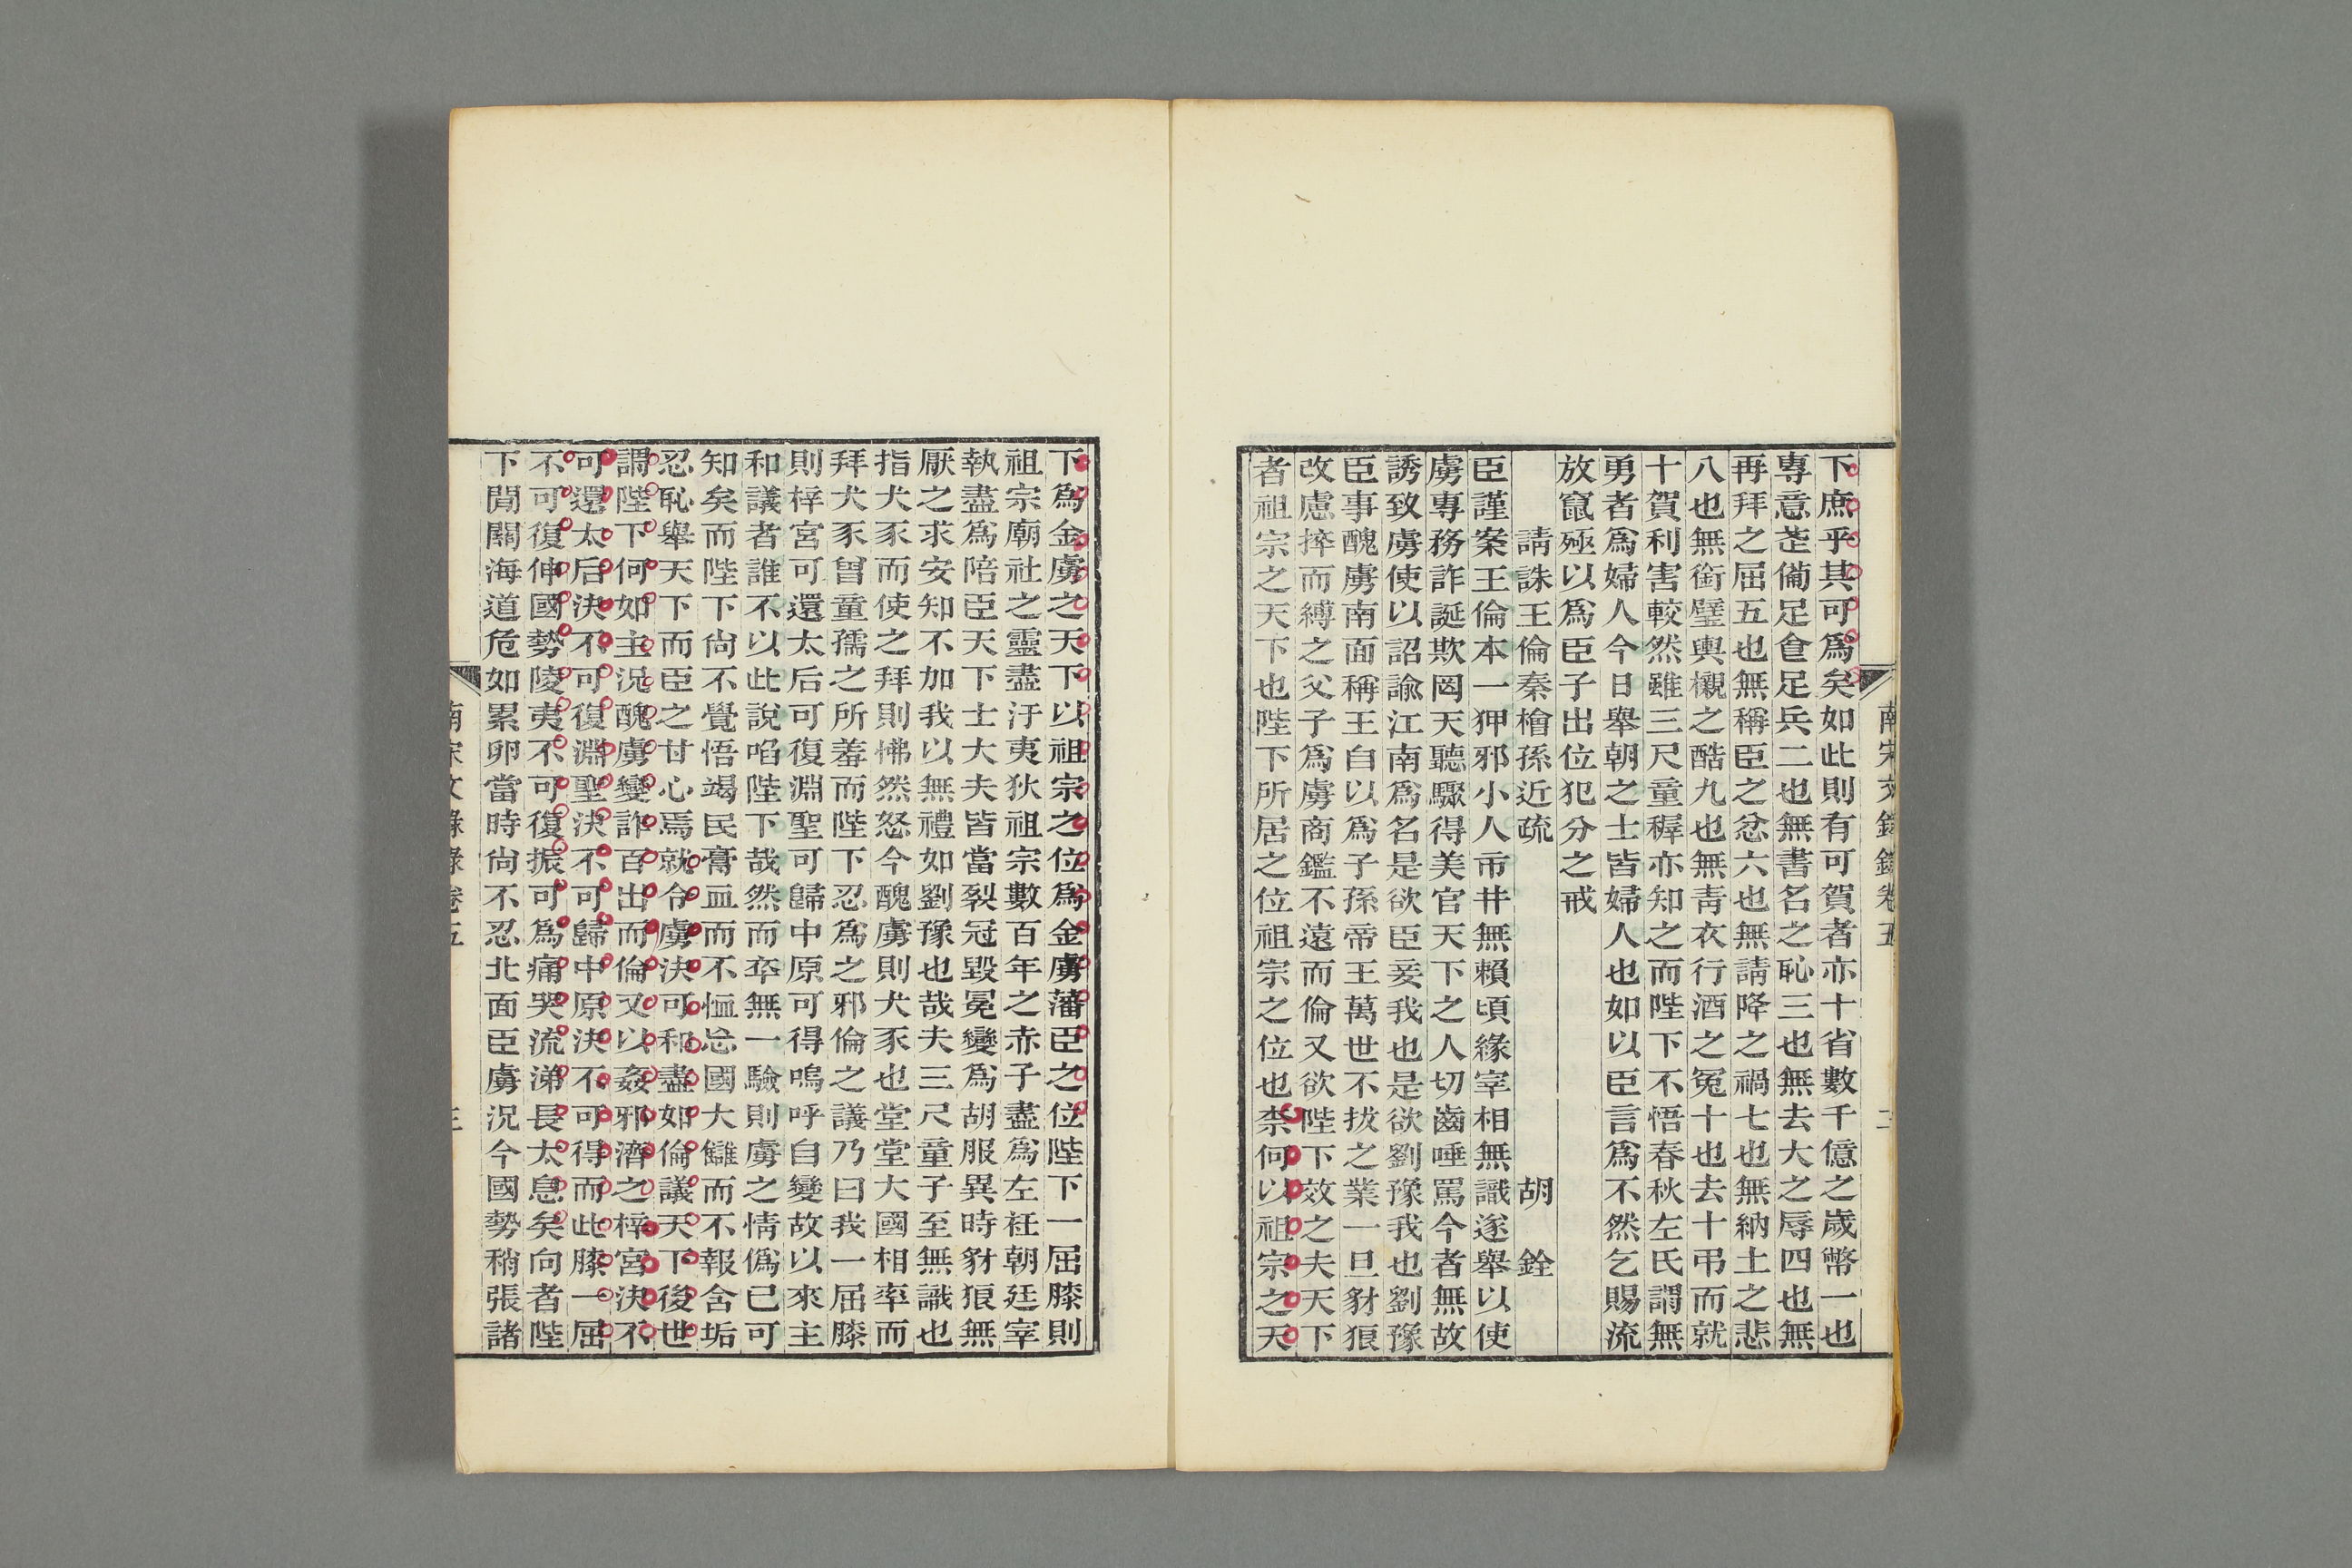 下庶乎其可爲矣如此則有可賀者亦十省數千億之歲幣一也
專意葐僃足㑹足兵二也無書名之恥三也無去大之辱四也無
再拜之屈五也無稱臣之忿六也無請降之禍七也無納土之悲
八也無銜璧輿櫬之酷九也無靑衣行酒之冤十也去十弔而就
十賀利害較然雖三尺童稺亦知之而陛下不悟春秋左氏謂無
勇者爲婦人今日舉朝之士皆婦人也如以臣言爲不然乞賜流
放竄殛以爲臣子出位犯分之戒
請誅王倫秦檜孫近疏 胡 銓
臣謹案王倫本一狎邪小人市井無賴頃緣宰相無識遂舉以使
虜專務詐誕欺罔天聽驟得美官天下之人切齒唾罵今者無故
誘致虜使以詔諭江南爲名是欲臣妾我也是欲劉豫我也劉豫
臣事醜虜南面稱王自以爲子孫帝王萬世不拔之業一旦豺狼
改慮捽而縛之父子爲虜商鑑不遠而倫又欲陛下效之夫天下
者祖宗之天下也陛下所居之位祖宗之位也柰何以祖宗之天
南宋文錄錄卷五 二
下爲金虜之天下以祖宗之位爲金虜藩臣之位陛下一屈膝則
祖宗廟社之靈盡汙夷狄祖宗數百年之赤子盡爲左衽朝廷宰
執盡爲陪臣天下士大夫皆當裂冠毀冕變爲胡服異時豺狼無
厭之求安知不加我以無禮如劉豫也哉夫三尺童子至無識也
指犬豕而使之拜則怫然怒今醜虜則犬豕也堂堂大國相率而
拜犬豕曾童孺之所羞而陛下忍爲之邪倫之議乃曰我一屈膝
則梓宮可還太后可復淵聖可歸中原可得嗚呼自變故以來主
和議者誰不以此說啗陛下哉然而卒無一驗則虜之情僞已可
知矣而陛下尙不覺悟竭民膏血而不恤忘國大讎而不報含垢
忍恥舉天下而臣之甘心焉就令虜決可和盡如倫議天下後世
謂陛下何如主況醜虜變詐百出而倫又以姦邪濟之梓宮決不
可還太后決不可復淵聖決不可歸中原決不可得而此膝一屈
不可復伸國勢陵夷不可復振可爲痛哭流涕長太息矣向者陛
下閒關海道危如累卵當時尙不忍北面臣虜況今國勢稍張諸
南宋文錄錄卷五 三